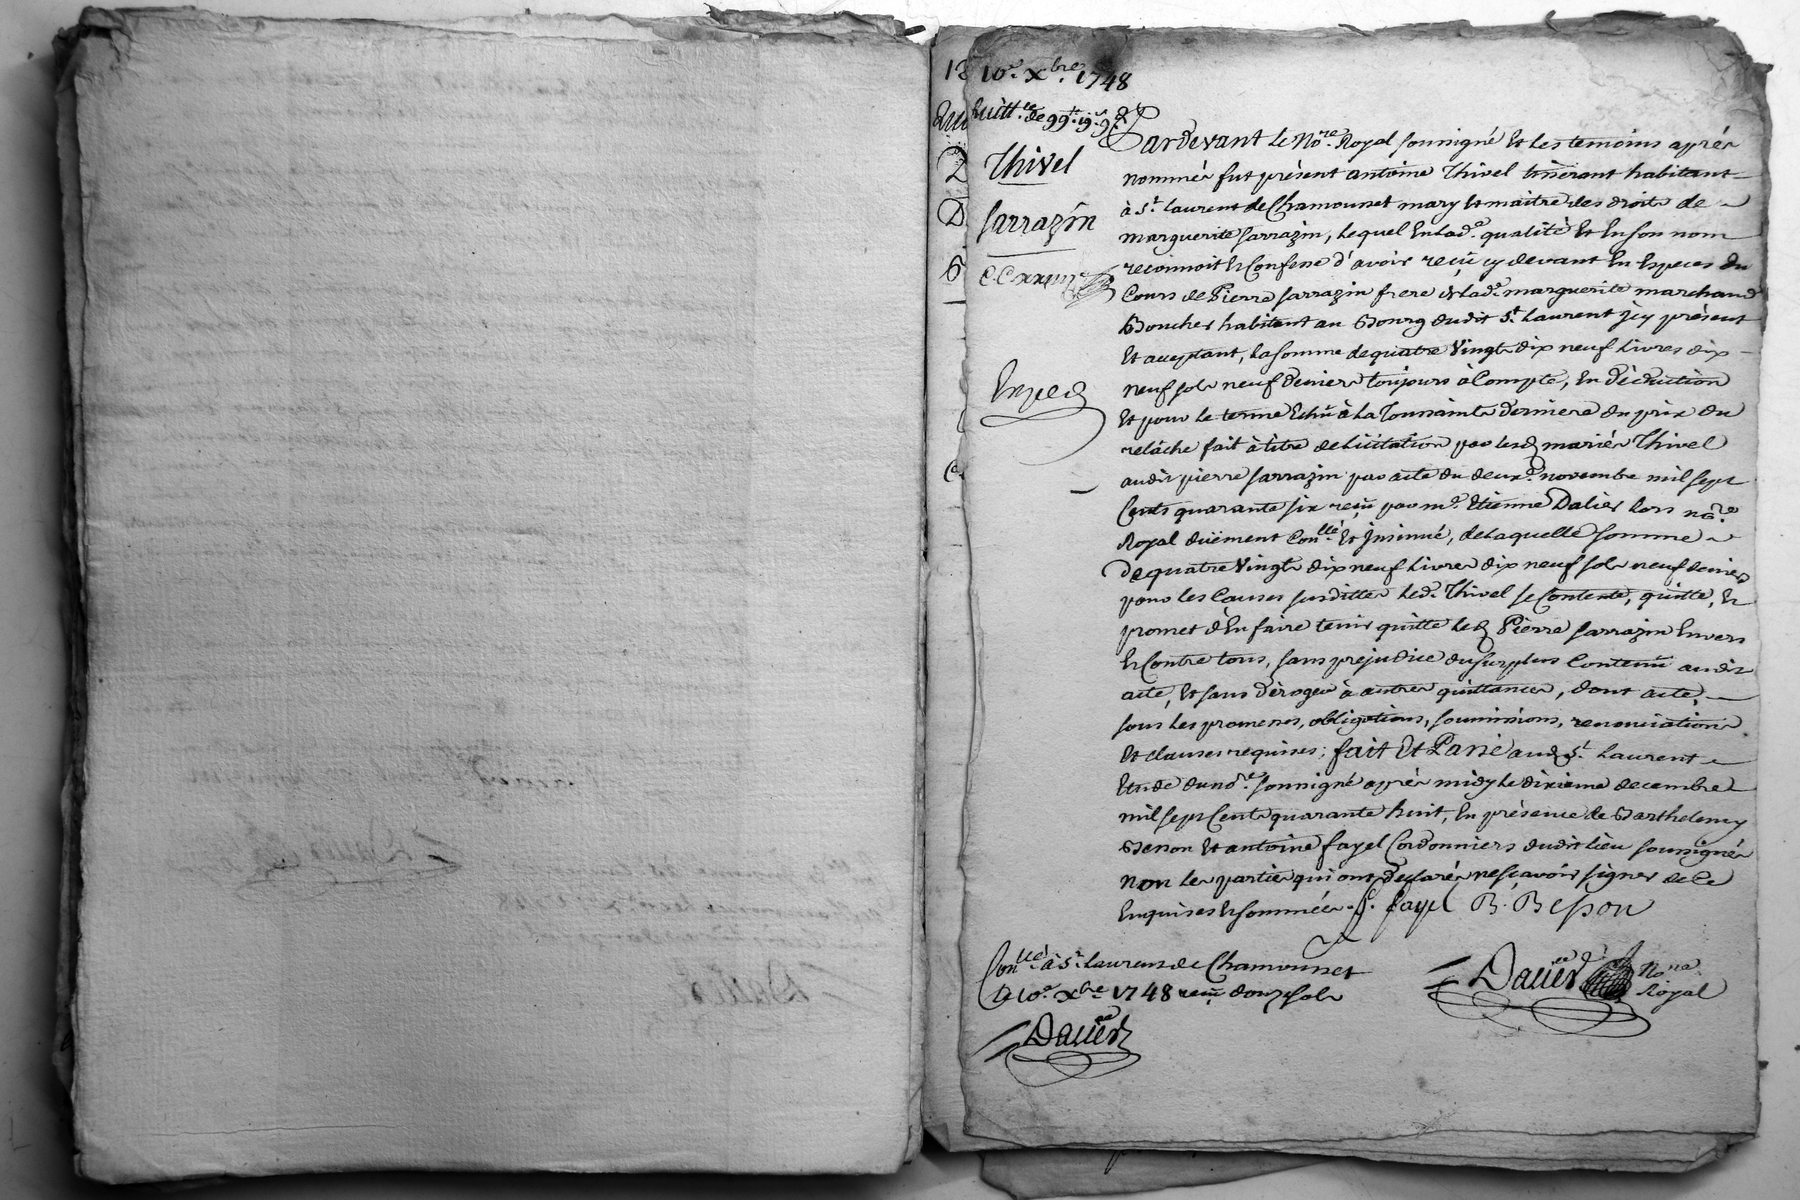 10e. Xbre. 1748
quitt.ce de 99.tt 19.s 9.d
Thivel
Sarrazin
Exped
Pardevant le No.re Royal soussigné Et les temoins après
nommés fut présent antoine Thivel tisserant habitant
à S.t Laurent de Chamousset mary Et maitre des droits de
marguerite Sarrazin, Lequel En lad.e qualité Et En son nom
reconnoit Et Confesse d'avoir reçu cy devant En Especes du
Cours de Pierre Sarrazin frere de lad.e marguerite marchand
Boucher habitant au Bourg dudit S.t Laurent Icy présent
Et acceptant, La somme de quatre Vingt dix neuf Livres dix
neuf sols neuf deniers toujours à Compte, En déduction
Et pour le terme Echu à La Toussaints derniere du prix du
relâche fait à titre de licitation par lesd. mariés Thivel
audit pierre Sarrazin par acte du deux.e novembre mil sept
Cents quarante six reçu par m.e Etienne Dalier Lors no.re
Royal duëment Con.llé Et Insinué, de Laquelle somme
de quatre Vingt dix neuf Livres dix neuf sols neuf deniers
pour les Causes susdittes led. Thivel se Contente, quitte, Et
promet d'En faire tenir quitte led. Pierre Sarrazin Envers
Et Contre tous, sans préjudice du surplus Contenu audit
acte, Et sans déroger à autres quittances, dont acte,
sous les promesses, obligations, soumissions, renonciations
Et clauses requises; fait Et Passé aud. S.t Laurent
Etude du no.re soussigné après midy le dixieme decembre
mil sept Cents quarante huit, En présence de Barthelemy
Besson Et antoine fayel Cordonniers dudit lieu soussignés
non les parties qui ont declaré ne sçavoir signer de Ce
Enquises Et sommées. fayel B. Besson
Con.llé à S.t Laurent de Chamousset
Le 10.e Xbre 1748 reçu douze sols
Dalier No.re
Royal
Dalier